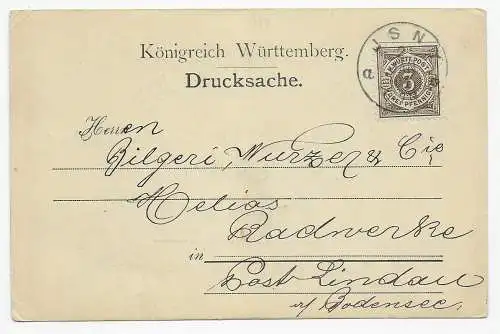 JSNY
Königreich Württemberg.
Drucksache.
K. WÜRTT. POST
3
DREI PFENNIG
a
Herren
Bilgeri, Wurzer & Cie
Helios
Radwerke
in
Post Lindau
a/ Bodensee.